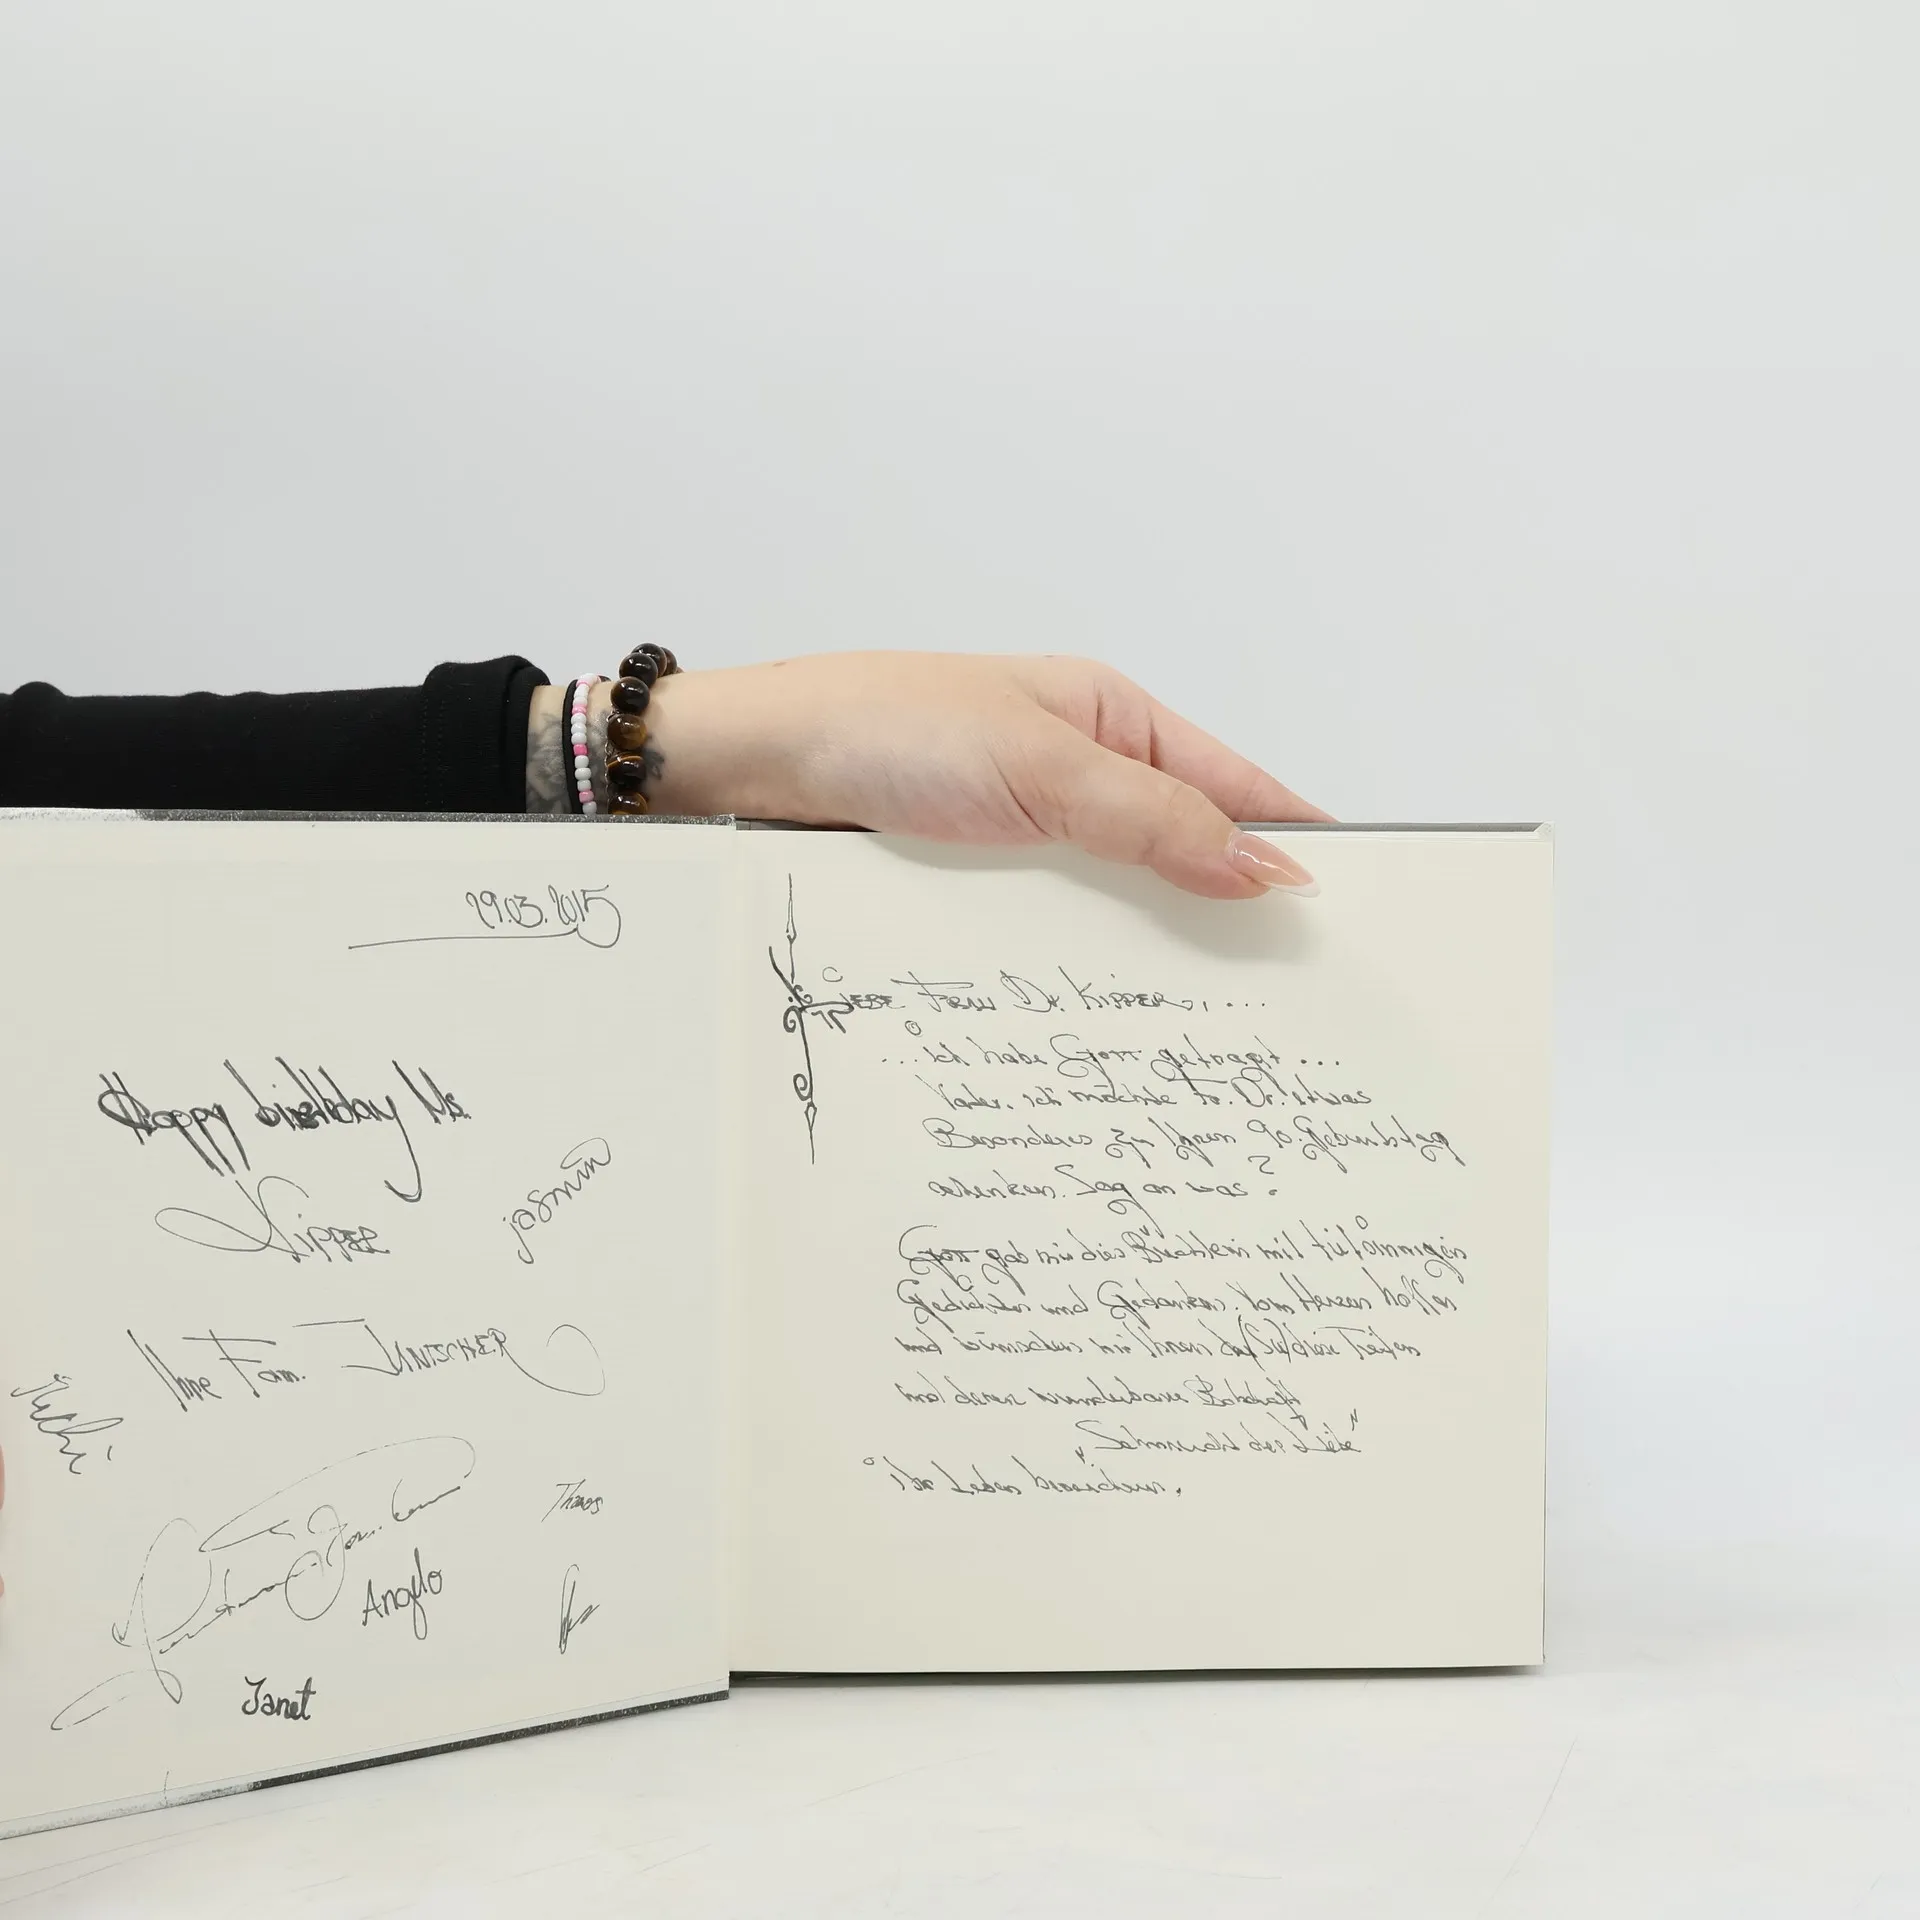 29.03.2015
Happy birthday Ms.
Kipper
jasmin
Ihre Fam. JANTSCHER
Thanos
Angelo
Janet
LIEBE FRAU Dr. KIPPER, ...
... ich habe GOTT gefragt ...
Vater, ich möchte Fr. Dr. etwas
Besonderes zu Ihren 90. Geburtstag
schenken. Sag an was?
GOTT gab mir dies Büchlein mit tiefsinnigen
Gedichten und Gedanken. Vom Herzen hoffen
und wünschen wir Ihnen daß Sie diese Tiefen
und deren wunderbare Botschaft
„Sehnsucht der Liebe"
ihr Leben bereichern.